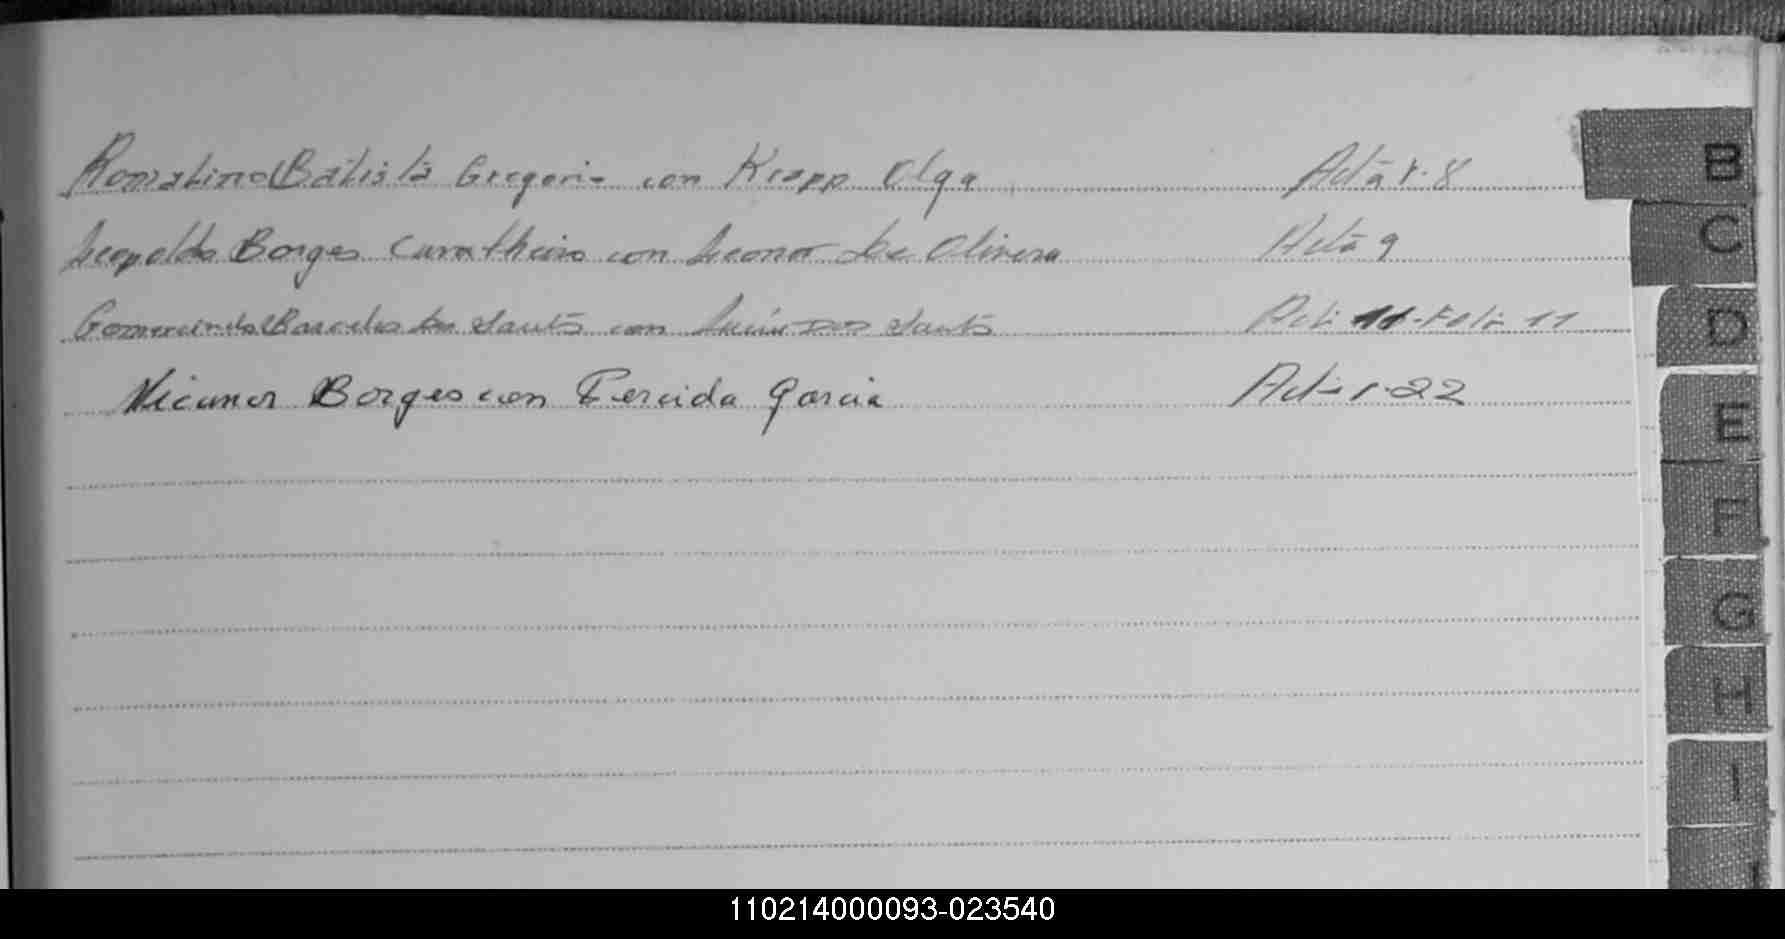 Romalino Batista Gregorio con Krapp Olga Acta 8
B
Leopoldo Borges Caralheiro con Leonor de Olivera Acta 9
C
Gomercindo Barcelos dos Santos con Lucia dos Santos Acta 11 - Folio 11
D
Nicanor Borges con Percida Garcia Acta 22
E
F
G
H
I
110214000093-023540